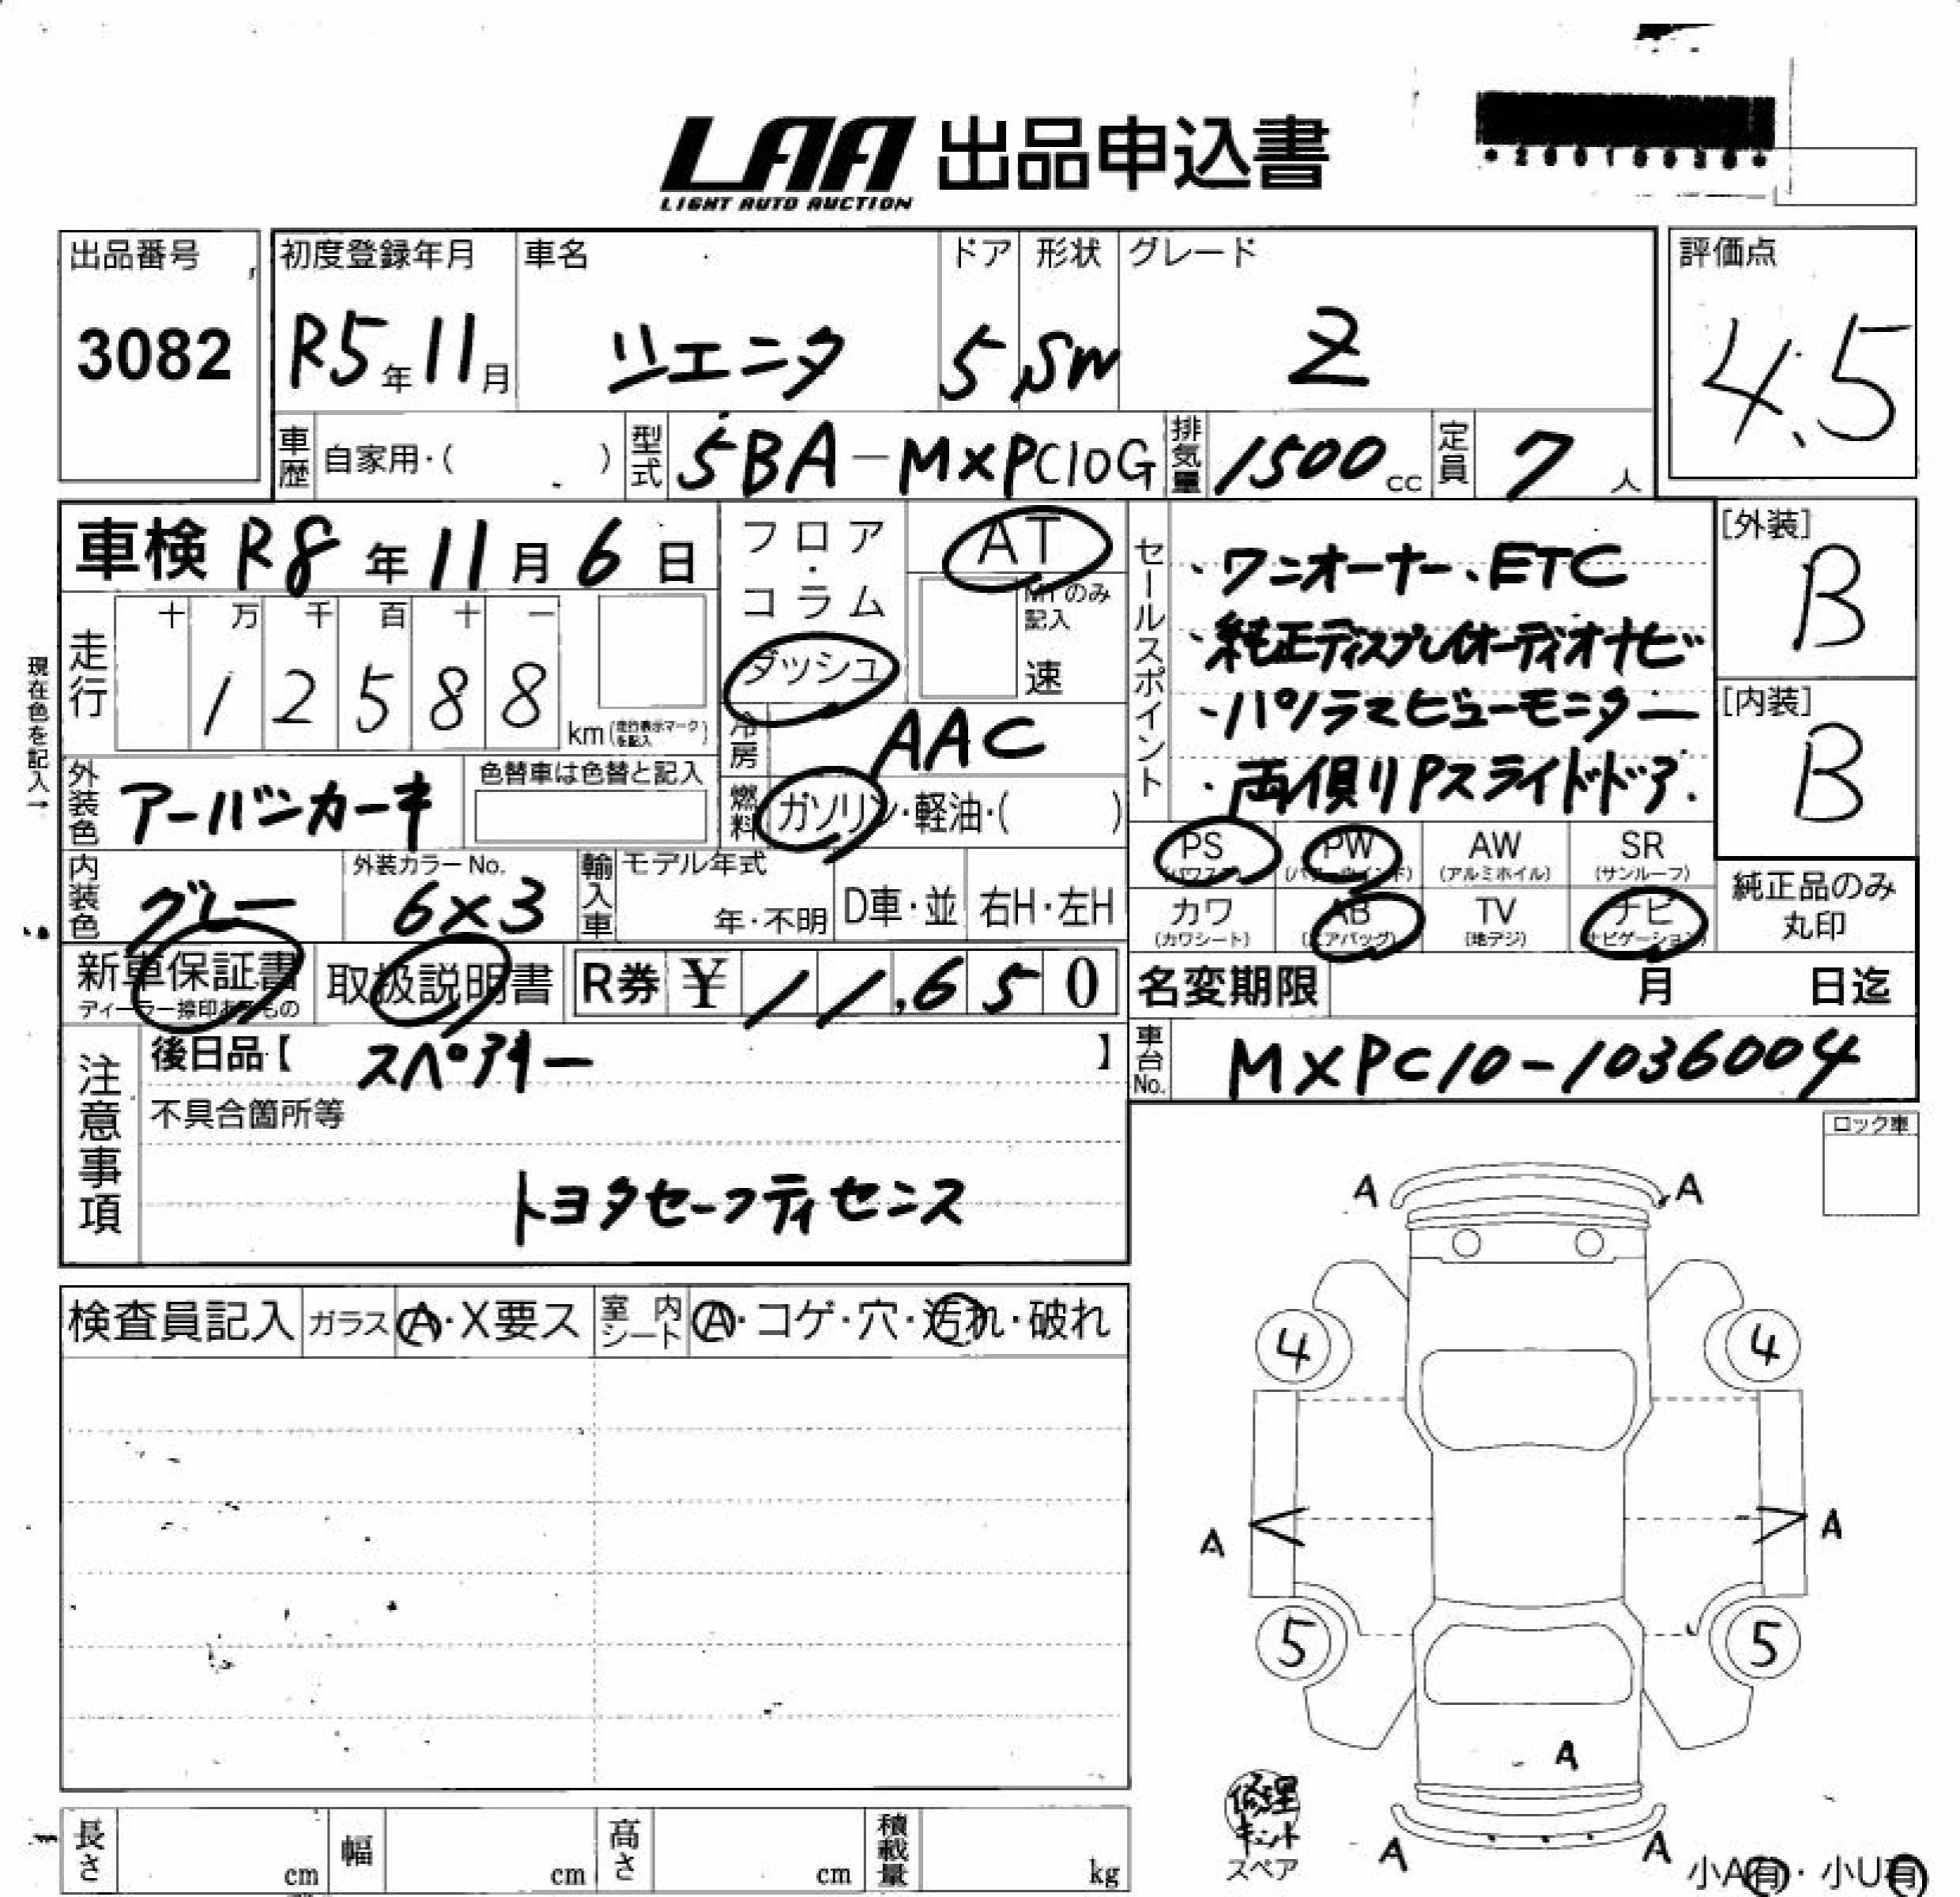 LAA 出品申込書
LIGHT AUTO AUCTION
出品番号
3082
初度登録年月
R5年11月
車名
シエンタ
ドア
5
形状
SW
グレード
Z
評価点
4.5
車歴 自家用・( )
型式 5BA-MXPC10G
排気量 1500cc
定員 7人
車検 R8年11月6日
フロア・コラム
ダッシュ
AT
MTのみ記入
速
セールスポイント
・ワンオーナー、ETC
・純正ディスプレイオーディオナビ
・パノラマビューモニター
・両側Pスライドドア.
[外装]
B
[内装]
B
現在色を記入→
走行
十 万 千 百 十 一
1 2 5 8 8
km(走行表示マークを記入)
冷房 AAC
外装色 アーバンカーキ
色替車は色替と記入
燃料 ガソリン・軽油・( )
PS (パワステ)
PW (パワーウインド)
AW (アルミホイル)
SR (サンルーフ)
カワ (カワシート)
AB (エアバッグ)
TV (地デジ)
ナビ (ナビゲーション)
純正品のみ丸印
内装色 グレー
外装カラーNo.
6X3
輸入車
モデル年式
年・不明
D車・並
右H・左H
新車保証書
取扱説明書
R券 ¥11,650
名変期限 月 日迄
車台No. MXPC10-1036004
注意事項
後日品【 スペアキー 】
不具合箇所等
トヨタセーフティセンス
ロック車
検査員記入
ガラス A・X要ス
室内シート A・コゲ・穴・汚れ・破れ
A A
4 4
A A
5 5
A
修理キット
スペア
A A
小A有・小U有
長さ cm
幅 cm
高さ cm
積載量 kg